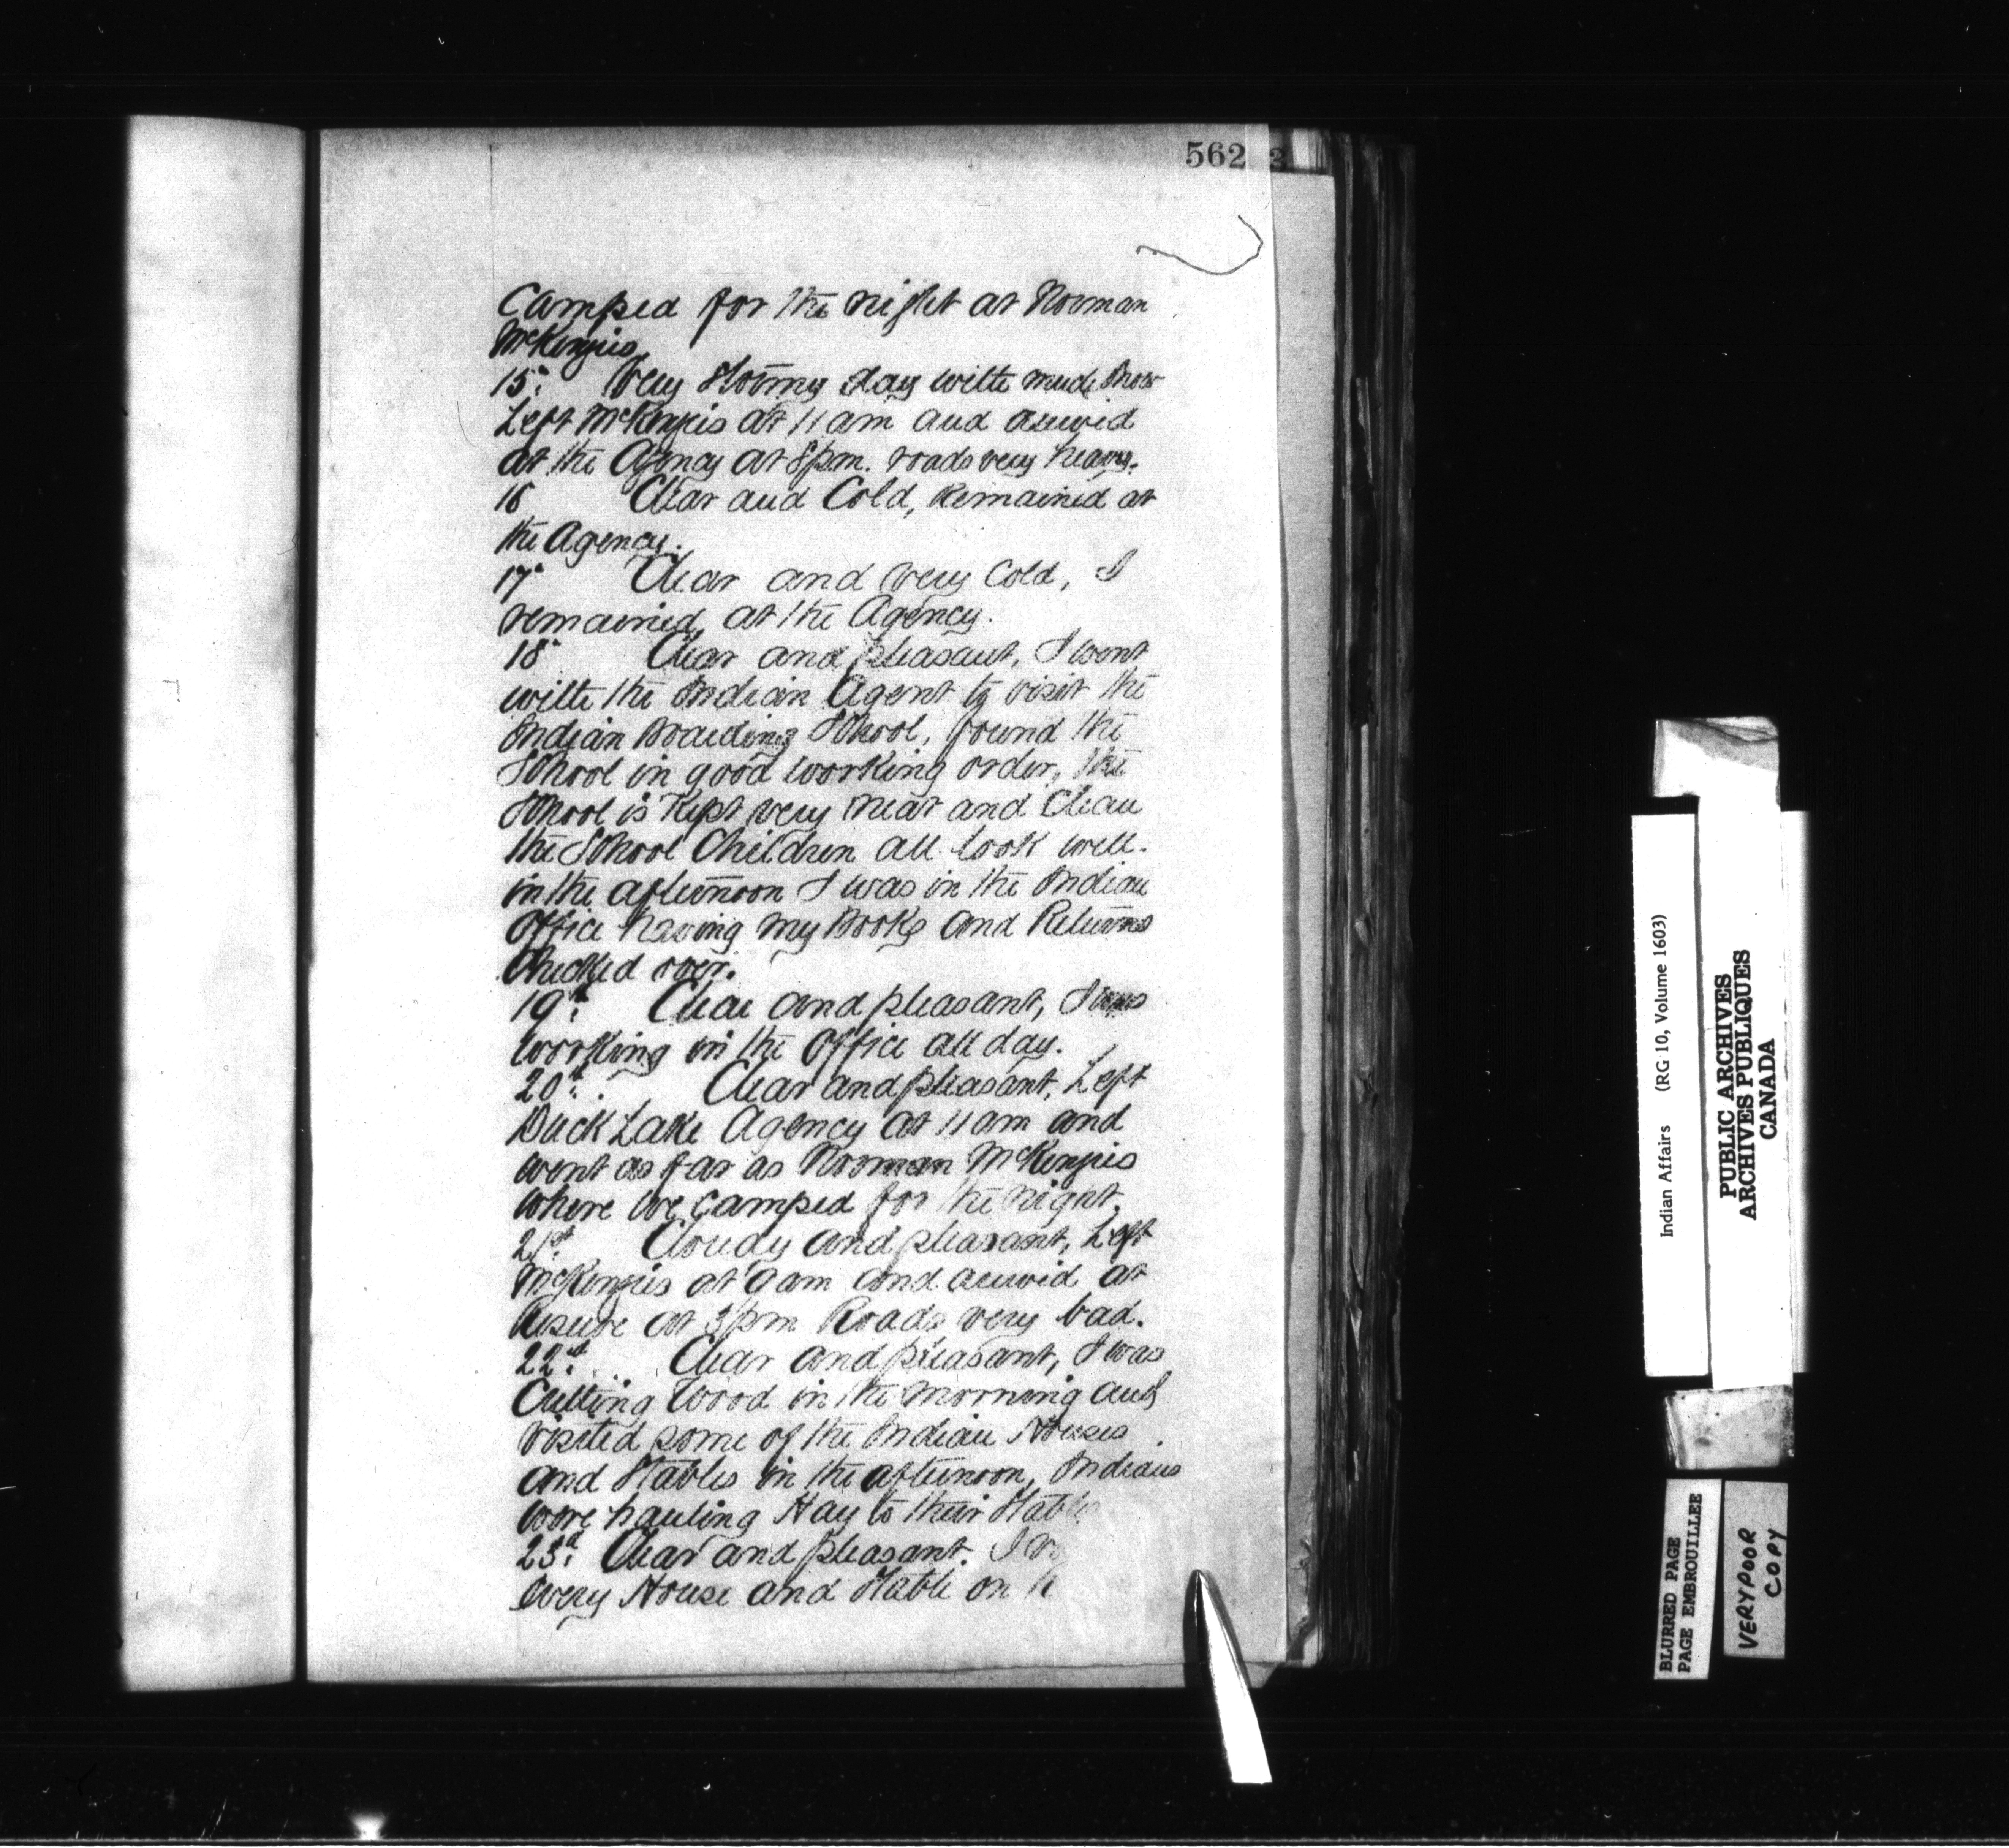 562
Camped for the night at Norman
McKenzies
15th Very Stormy day with much Snow
Left McKenzies at 11 am and arrived
at the Agency at 8 pm. roads very heavy.
16 Clear and Cold, Remained at
the Agency.
17th Clear and very Cold, I
remained at the Agency.
18th Clear and pleasant, I went
with the Indian Agent to visit the
Indian Boarding School, found the
School in good working order, the
School is Kept very neat and Clean
the School Children all look well.
in the afternoon I was in the Indian
Office having my Books and Returns
Checked over.
19th Clear and pleasant, I was
working in the Office all day.
20th Clear and pleasant, Left
Duck Lake Agency at 11 am and
went as far as Norman McKenzies
where we camped for the night.
21st Cloudy and pleasant, Left
McKenzies at 9 am and arrived at
Reserve at 3 pm Roads very bad.
22nd Clear and pleasant, I was
Cutting Wood in the morning and
visited some of the Indian Houses
and Stables in the afternoon, Indians
were hauling Hay to their
23rd Clear and pleasant. I
every House and Stable on
Indian Affairs (RG 10, Volume 1603)
PUBLIC ARCHIVES
ARCHIVES PUBLIQUES
CANADA
BLURRED PAGE
PAGE EMBROUILLEE
VERY POOR
COPY